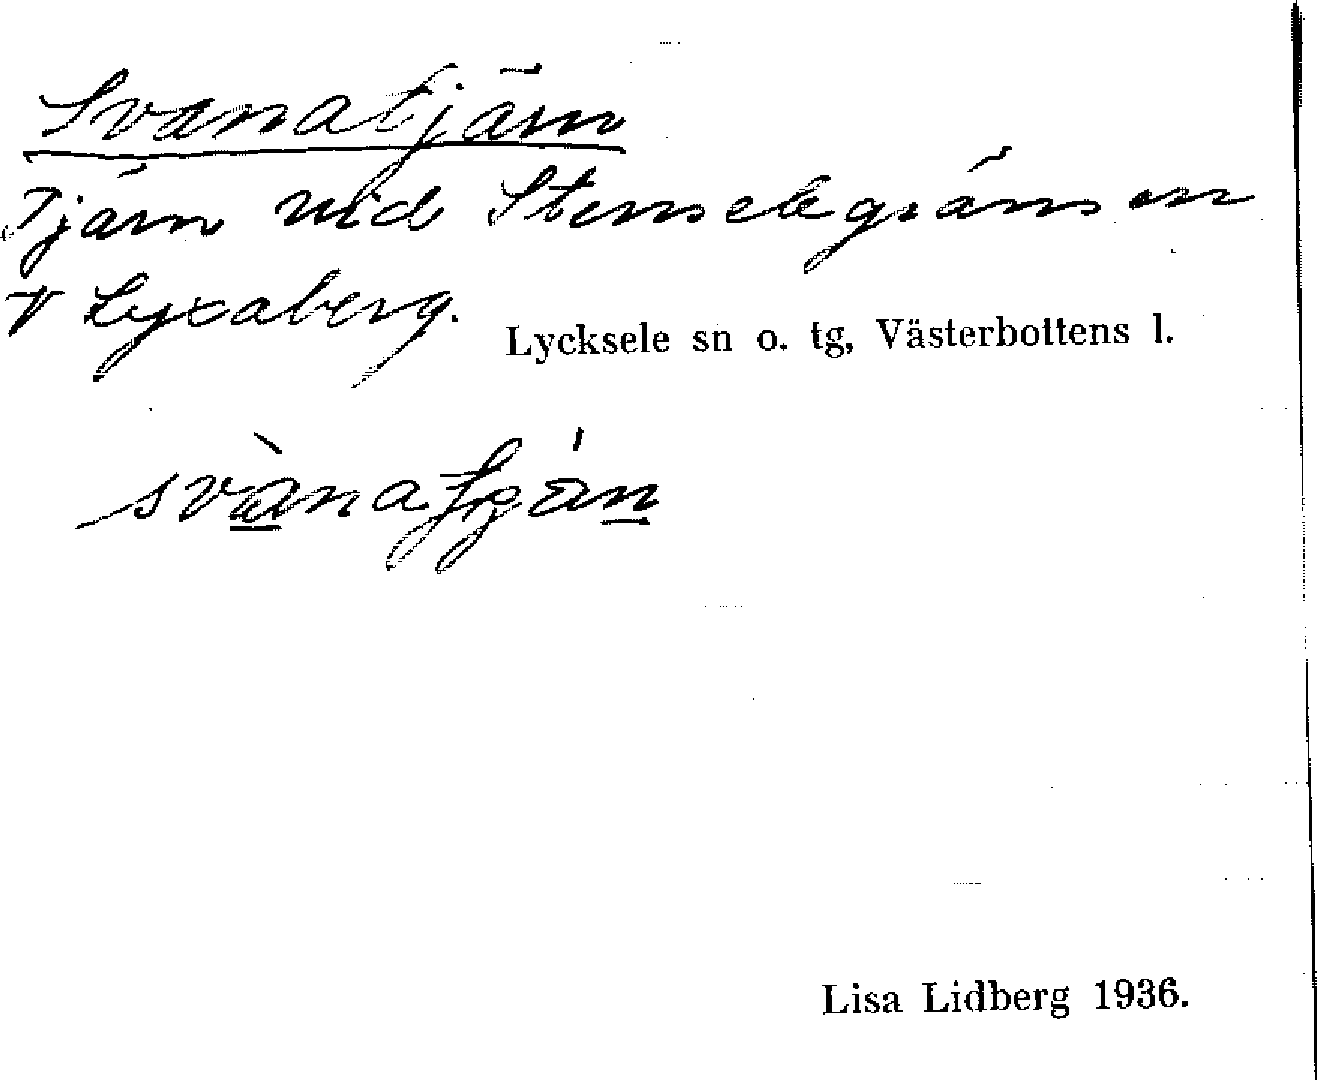 Svanatjärn
Tjärn vid Stenselegränsen
V Lyxaberg.
Lycksele sn o. tg, Västerbottens l.
Lisa Lidberg 1936.